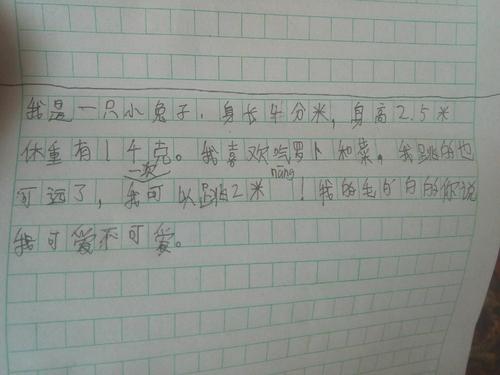 我是一只小兔子.身长4分米,身高2.5米
体重有14克。我喜欢吃罗卜和菜,我跳的也
可远了,我一次可以跳2米nāng!我的毛白白的你说
我可爱不可爱。